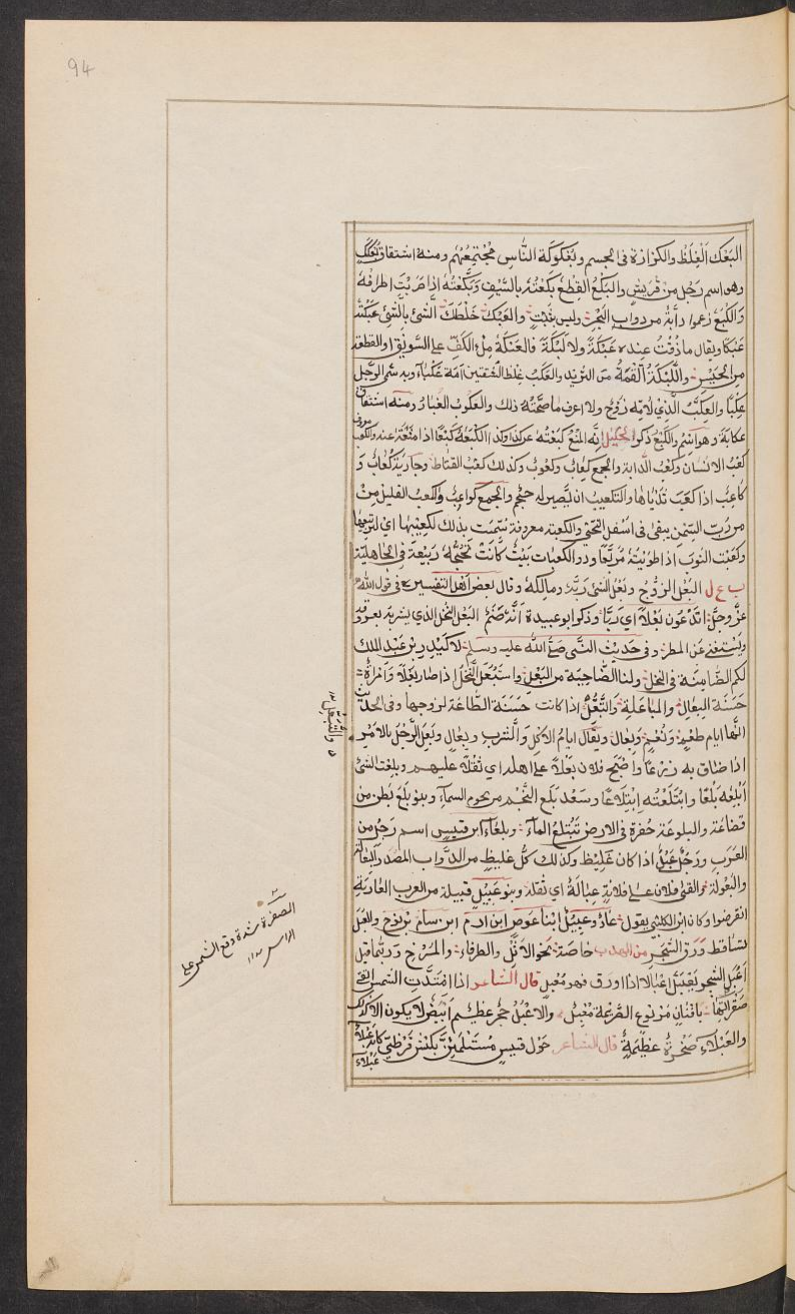 94
البَعْك الْغِلَظُ والكزازة فى الجسم وبُعْكوكَة النَّاسِ مُجْتَمِعُهُم ومنه اشتقاق بَعْكَكٍ
وهو اسم رَجُل من قريش والبَكْعُ القطْعُ بكعْتُهُ بالسَّيْف وبَكَّعْتُهُ اذا ضربْتَ اطرافهُ
وَالكُبَعُ زعموا دابَّةٌ من دوابِ البَحْر وليس بثَبْتٍ والعَبْكُ خَلْطُكَ الشئ بالشئ عَبَكْتُهُ
عَبْكًا ويقال ماذُقْتُ عنده عَبَكَةً ولا لَبَكَةً فالعَبَكَةُ مِلْءُ الكَفِّ من السويق او القطعة
من الحَيْسِ واللَّبَكَةُ اللُّقْمَةُ من الثريد والعَكَبُ غِلَظ الشفتين أمَة عَكْباءُ وبه سُمّى الرجل
عِكَبًّا والعِكَبُّ الَّذِي لاُمِّه زَوْجٌ ولا اعرف ما صحّتُهُ ذلك والعَكوبُ الغبارُ ومنه اشتقاق
عكابَة وهو اسْمٌ والكَبْعُ ذكر الخَليل انّه المَنْعُ كبَعْتُهُ عن كذا وكذا اكْبَعُهُ كَبْعًا اذا منَعْتَهُ عنه والكَعْبُ معروف
كعْبُ الانسان وكَعْبُ الدابة والجمع كِعابٌ وكُعُوبٌ وكذلك كعْبُ القناة وجاريةٌ كَعابٌ و
كاعِبٌ اذا كعَبَ ثدْياها والتكعيب ان يَصيرَ له حجْم والجمع كواعِبُ والكَعْبُ القليل مِنْ
من رُبّ السّمْن يبقى فى اسْفل النِّحْى والكعبة معروفة سُمّيَت بذلك لتكعيبها اى لتربيعها
وكعَّبْتُ الثوبَ اذا طوَيْتَهُ مُرَبَّعًا وذو الكعبات بَيْتٌ كانَتْ تَحُجُّهُ ربيعة فى الجاهليّة
ب ع ل البَعْل الزوْجُ وبَعْلُ الشئ رَبّه ومالكُه وقال بعض اهْل التفسير فى قول الله
عزّ وجلّ اتَدْعُون بَعْلاً اى ربًّا وذكر ابو عبيدة انّه صَنَمٌ البَعْل النَّخل الذى يشرب بعروقه
ويَسْتغنى عن المطر وفى حديث النَّبى صلى الله عليه وسلم لاُكَيْدِر بْن عَبْد الملك
لكم الضّامِنَة فى النخل ولنا الضَّاحِيَة من البَعْل واستَبْعَلَ النَّخل اذا صار بَعْلا وامْرأةٌ
حَسَنة البِعَال والمباعَلةِ والتبَعُّل اذا كانت حَسَنَة الطاعَة لزوجها وفى الحديث
انّها ايام طَعْمٍ ونُعْمٍ وبِعالٍ ويقال ايامُ الاكْلِ والشُّربِ وبِعالٍ وبَعِلَ الرَّجُل بالامْرِ
اذا ضاق به ذرْعًا واَصْبَح فلان بَعْلاً على اهله اى ثِقْلاً عليهم وبلعْتُ الشئ
أبْلعُه بَلْعًا وابْتَلَعْتُه ابْتِلاعًا وسَعْد بُلَعَ النَّجْمُ من نجوم السماء وبنو بُلَعَ بُطن من
قضاعة والبلوعة حُفرة فى الارض تَبْتلِعُ الماءَ وبلعاءُ ابن قيسٍ اسم رجُل من
العَرَب ورَجُلٌ عَبْلٌ اذا كان غليظ وكذلك كلّ غليظٍ من الدّوابّ المصدر العبالة
والعُبُولة والقى فلان على فلانٍ عبالّهُ اى ثِقْلَه وبنو عَبيل قبيلة من العرب العاربة
انقرضوا وكان ابن الكلبى يقول عادٌ وعبيلٌ ابْنا عوص ابن ارم ابن سام بن نوح والعَبَلُ
تساقط ورَق الشَجَر من الهدب خاصّةً نحو الاثْل والطرفاء والمَرْخ وربّما قيل
أعْبَل الشجر يُعْبِل اعْبالا اذا اورق فهو مُعْبِل قال الشاعر اذا امْتدَّت الشمس اتَّقى
صَقَراتِها بافنان مَرْبوع الصَّرِيمة مُعْبِل والاعْبَلُ حجر عظيم أبْيَضُ لا يكون الا كذلك
والعَبْلاءُ صَخْرةٌ عظيمةٌ قال الشاعر حَوْل قيس مستَلْئِمينَ بكَبْشٍ قَرَظىٍّ كأنه عَبْلاءُ
والتبعل
الصقرة شدة وقع الشمس على
الراس